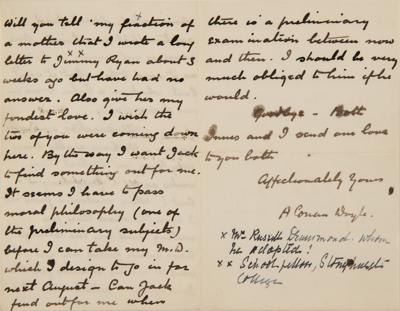 Will you tell my fraction of
x
a mother that I wrote a long
x x
letter to Jimmy Ryan about 3
weeks ago but have had no
answer. Also give her my
fondest love. I wish the
two of you were coming down
here. By the way I want Jack
to find something out for me.
It seems I have to pass
moral philosophy (one of
the preliminary subjects)
before I can take my M.D.
which I design to go in for
next August – Can Jack
find out for me when
there is a preliminary
examination between now
and then. I should be very
much obliged to him if he
would.
Goodbye – Both
Innes and I send our love
to you both
Affectionately Yours
A Conan Doyle.
x Mrs Russell Drummond. whom
he adopted!
x x School fellow, Stonyhurst
College